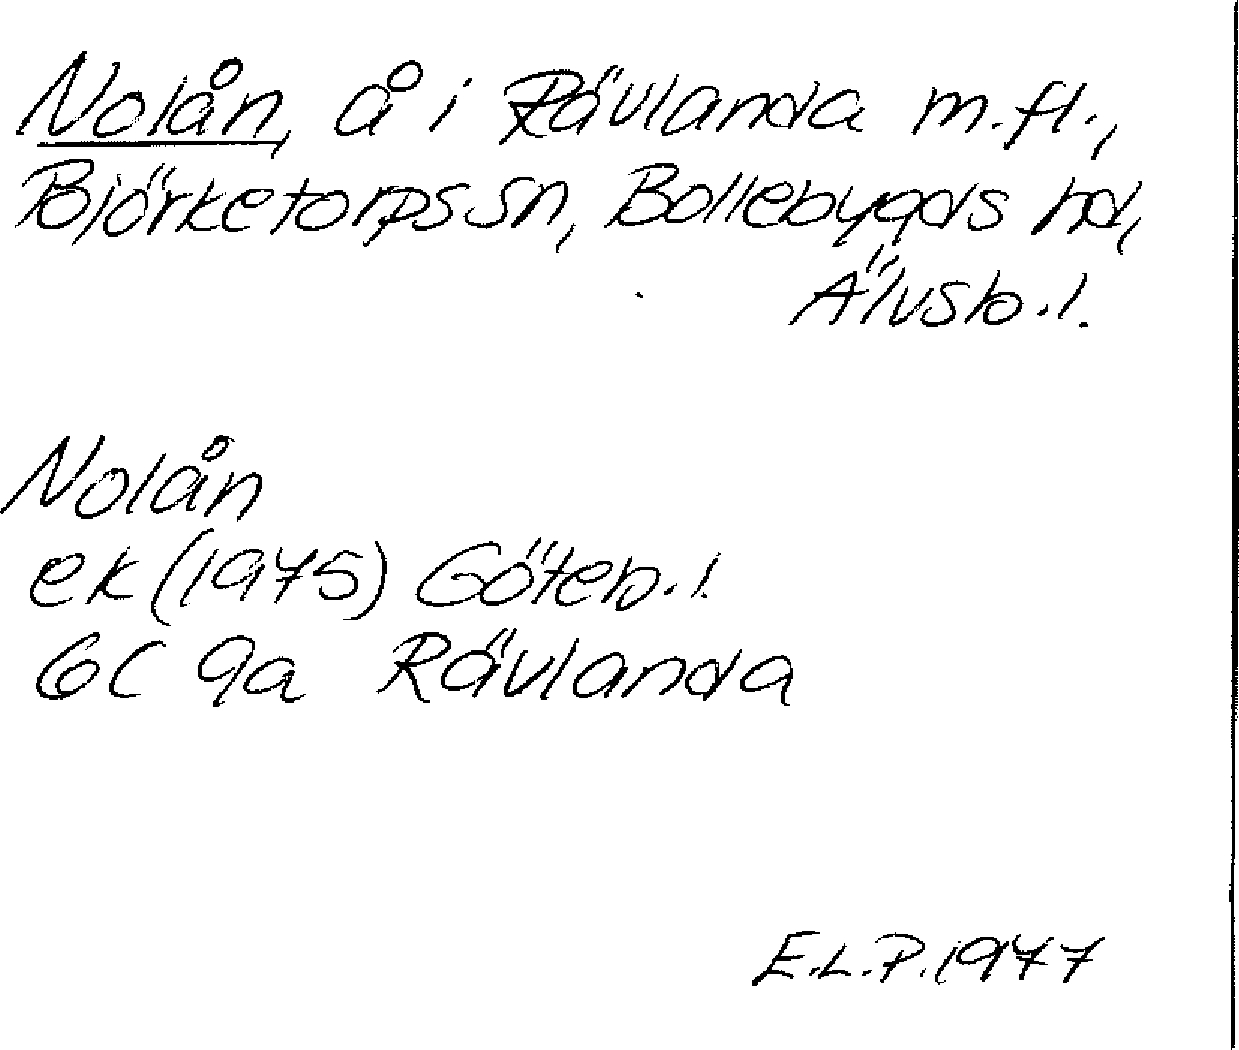 Nolån, å i Rävlanda m.fl.,
Björketorps sn, Bollebygds hd,
Älvsb.l.
Nolån
ek (1975) Göteb.l.
6C 9a Rävlanda
E.L.P. 1977